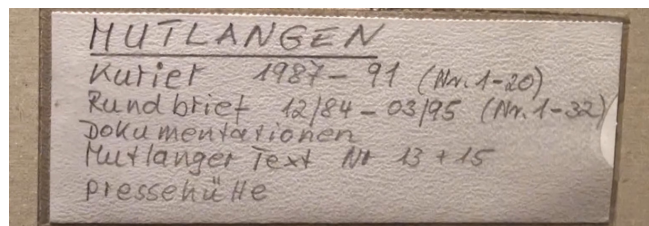 MUTLANGEN
Kurier 1987-91 (Nr. 1-20)
Rundbrief 12/84-03/95 (Nr. 1-32)
Dokumentationen
Mutlanger Text Nr 13 + 15
Pressehütte